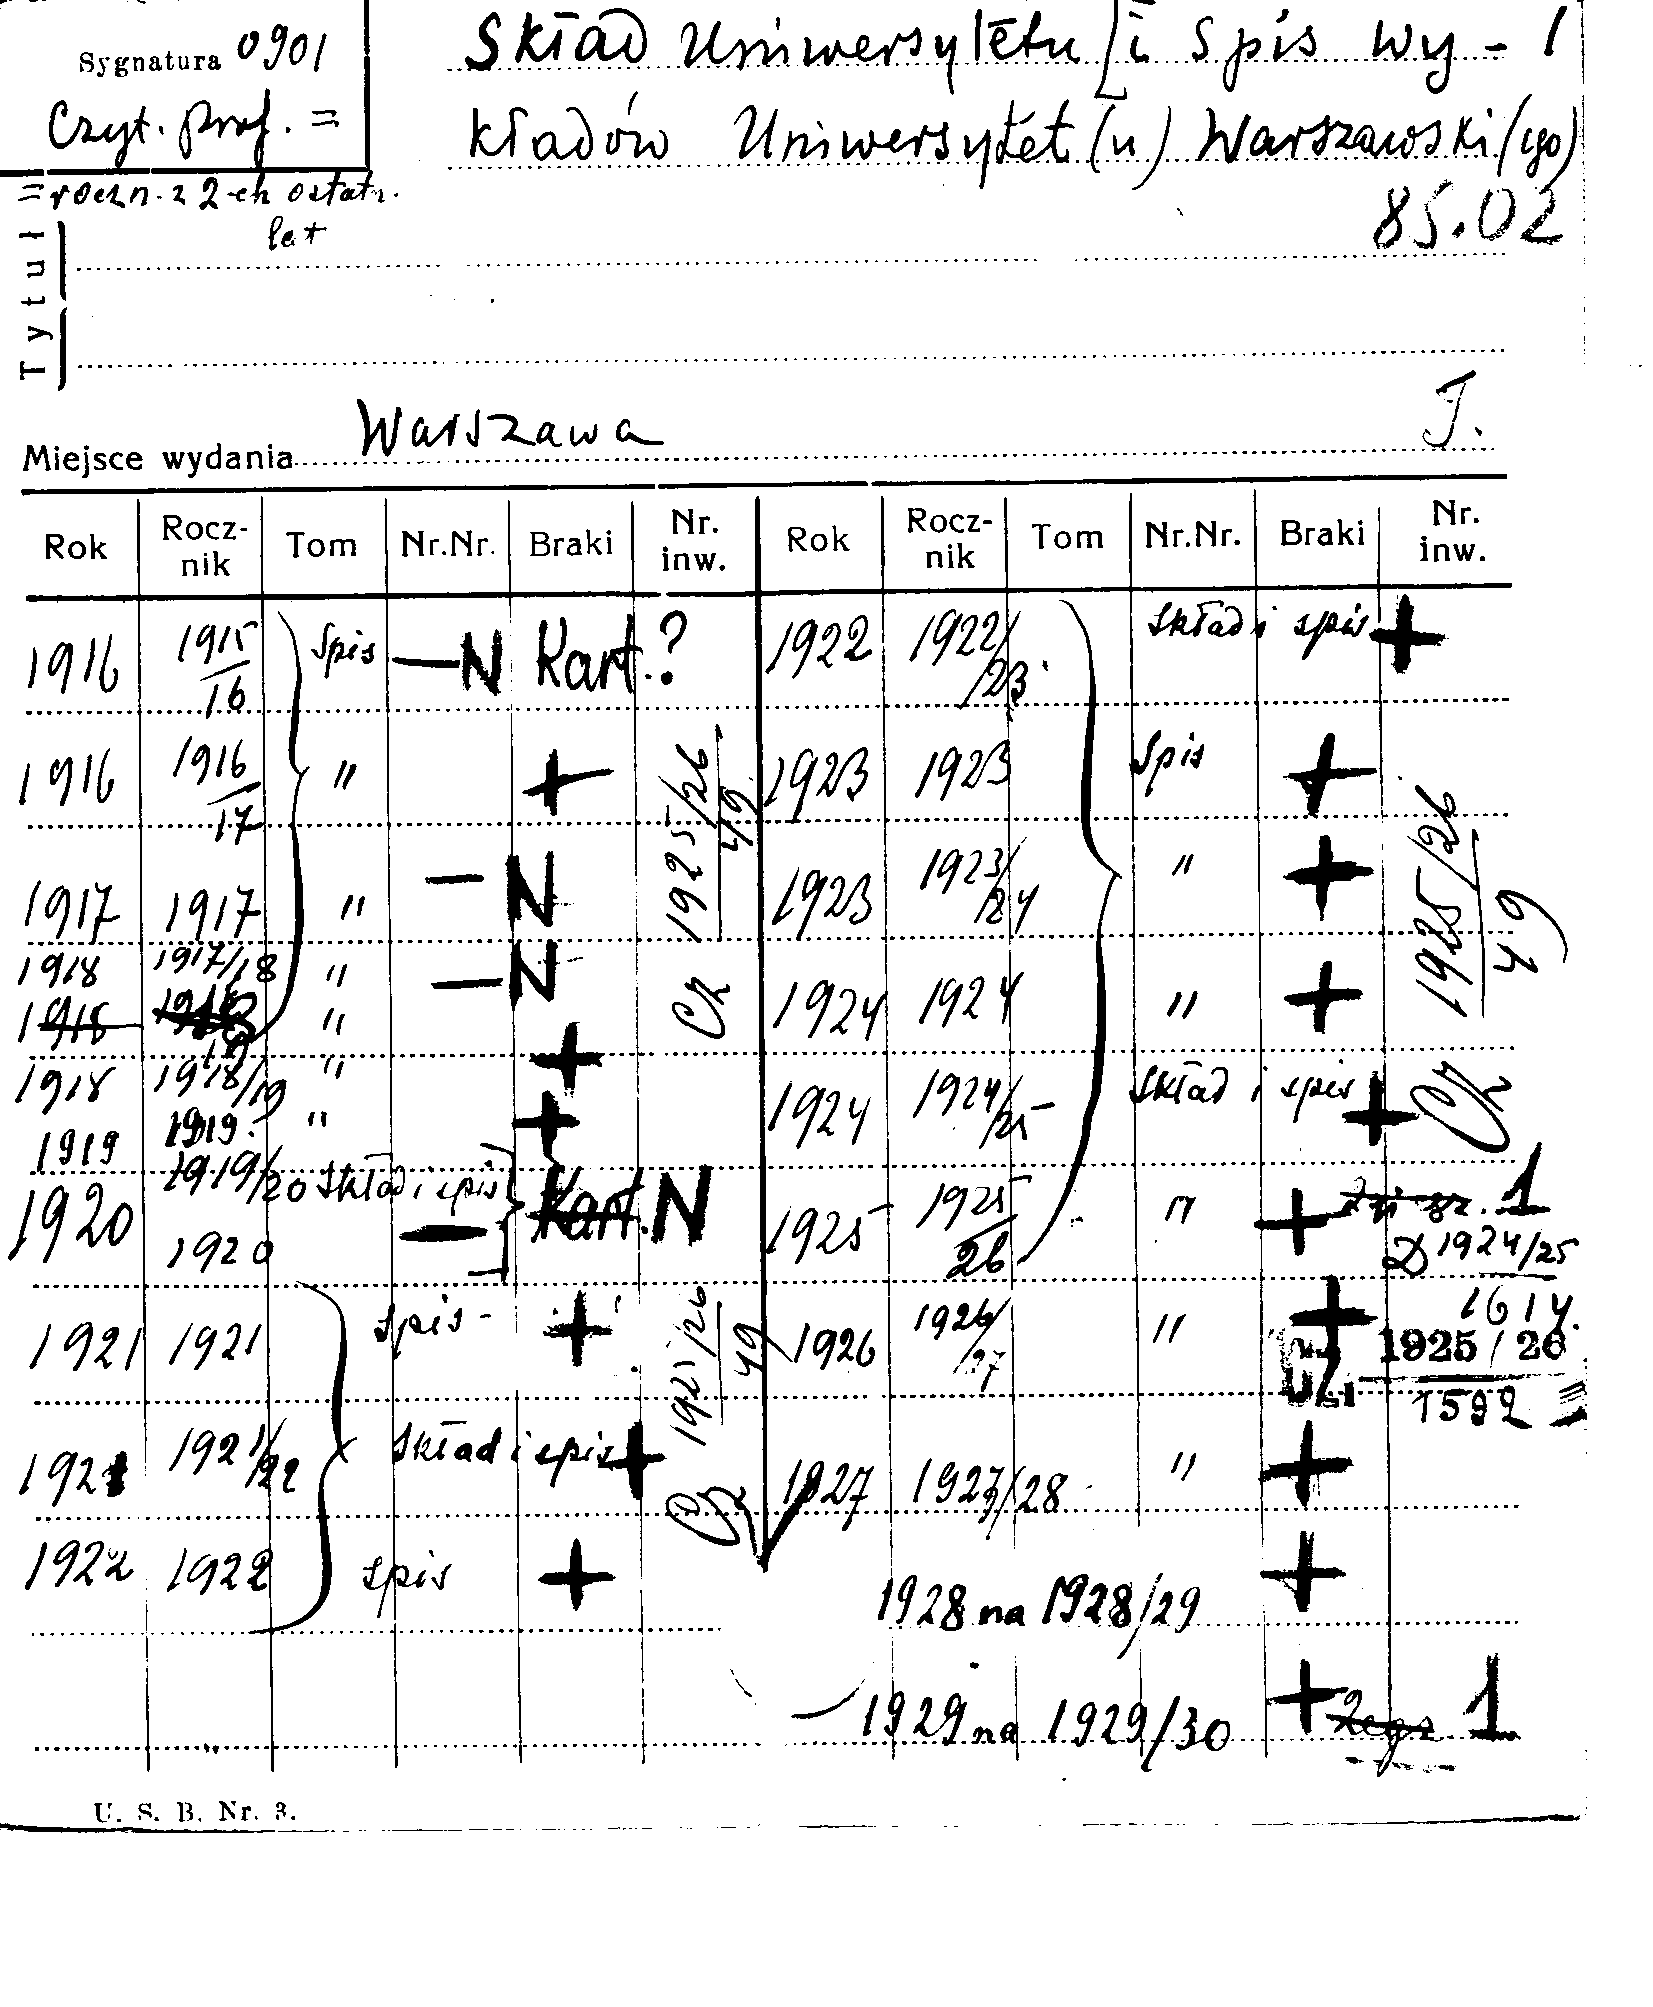 Sygnatura 0901
Czyt. prof. =
= roczn. z 2-ch ostatn.
let
Skład Uniwersytetu [i Spis wy- 1
kładów Uniwersytet(u) Warszawski(ego)
85.02
Tytuł
Miejsce wydania Warszawa
T.
Rok Rocz-nik Tom Nr.Nr. Braki Nr. inw. Rok Rocz-nik Tom Nr.Nr. Braki Nr. inw.
1916 1915/16 Spis — N Kart. ?
1916 1916/17 " +
1917 1917 " — N
1918 1917/18 " — N
1918 "
1918 1918/19 " +
1919 1919. " +
1919/20 Skład i spis Kart. N
1920 1920 —
1921 1921 spis - +
1921 1921/22 Skład i spis +
1922 1922 spis +
1925/26
49
Cz
1925/26
49
Cz
1922 1922/23. Skład i spis +
1923 1923 Spis +
1923 1923/24 " +
1924 1924 " +
1924 1924/25 Skład i spis +
1925 1925/26 " + 1
D 1924/25
1614.
1926 1926/27 " +
1925/26
1592
1927 1927/28 " +
1928 na 1928/29 +
— 1929 na 1929/30 + 2egz 1
1925/26
49
Cz
U. S. B. Nr. 3.